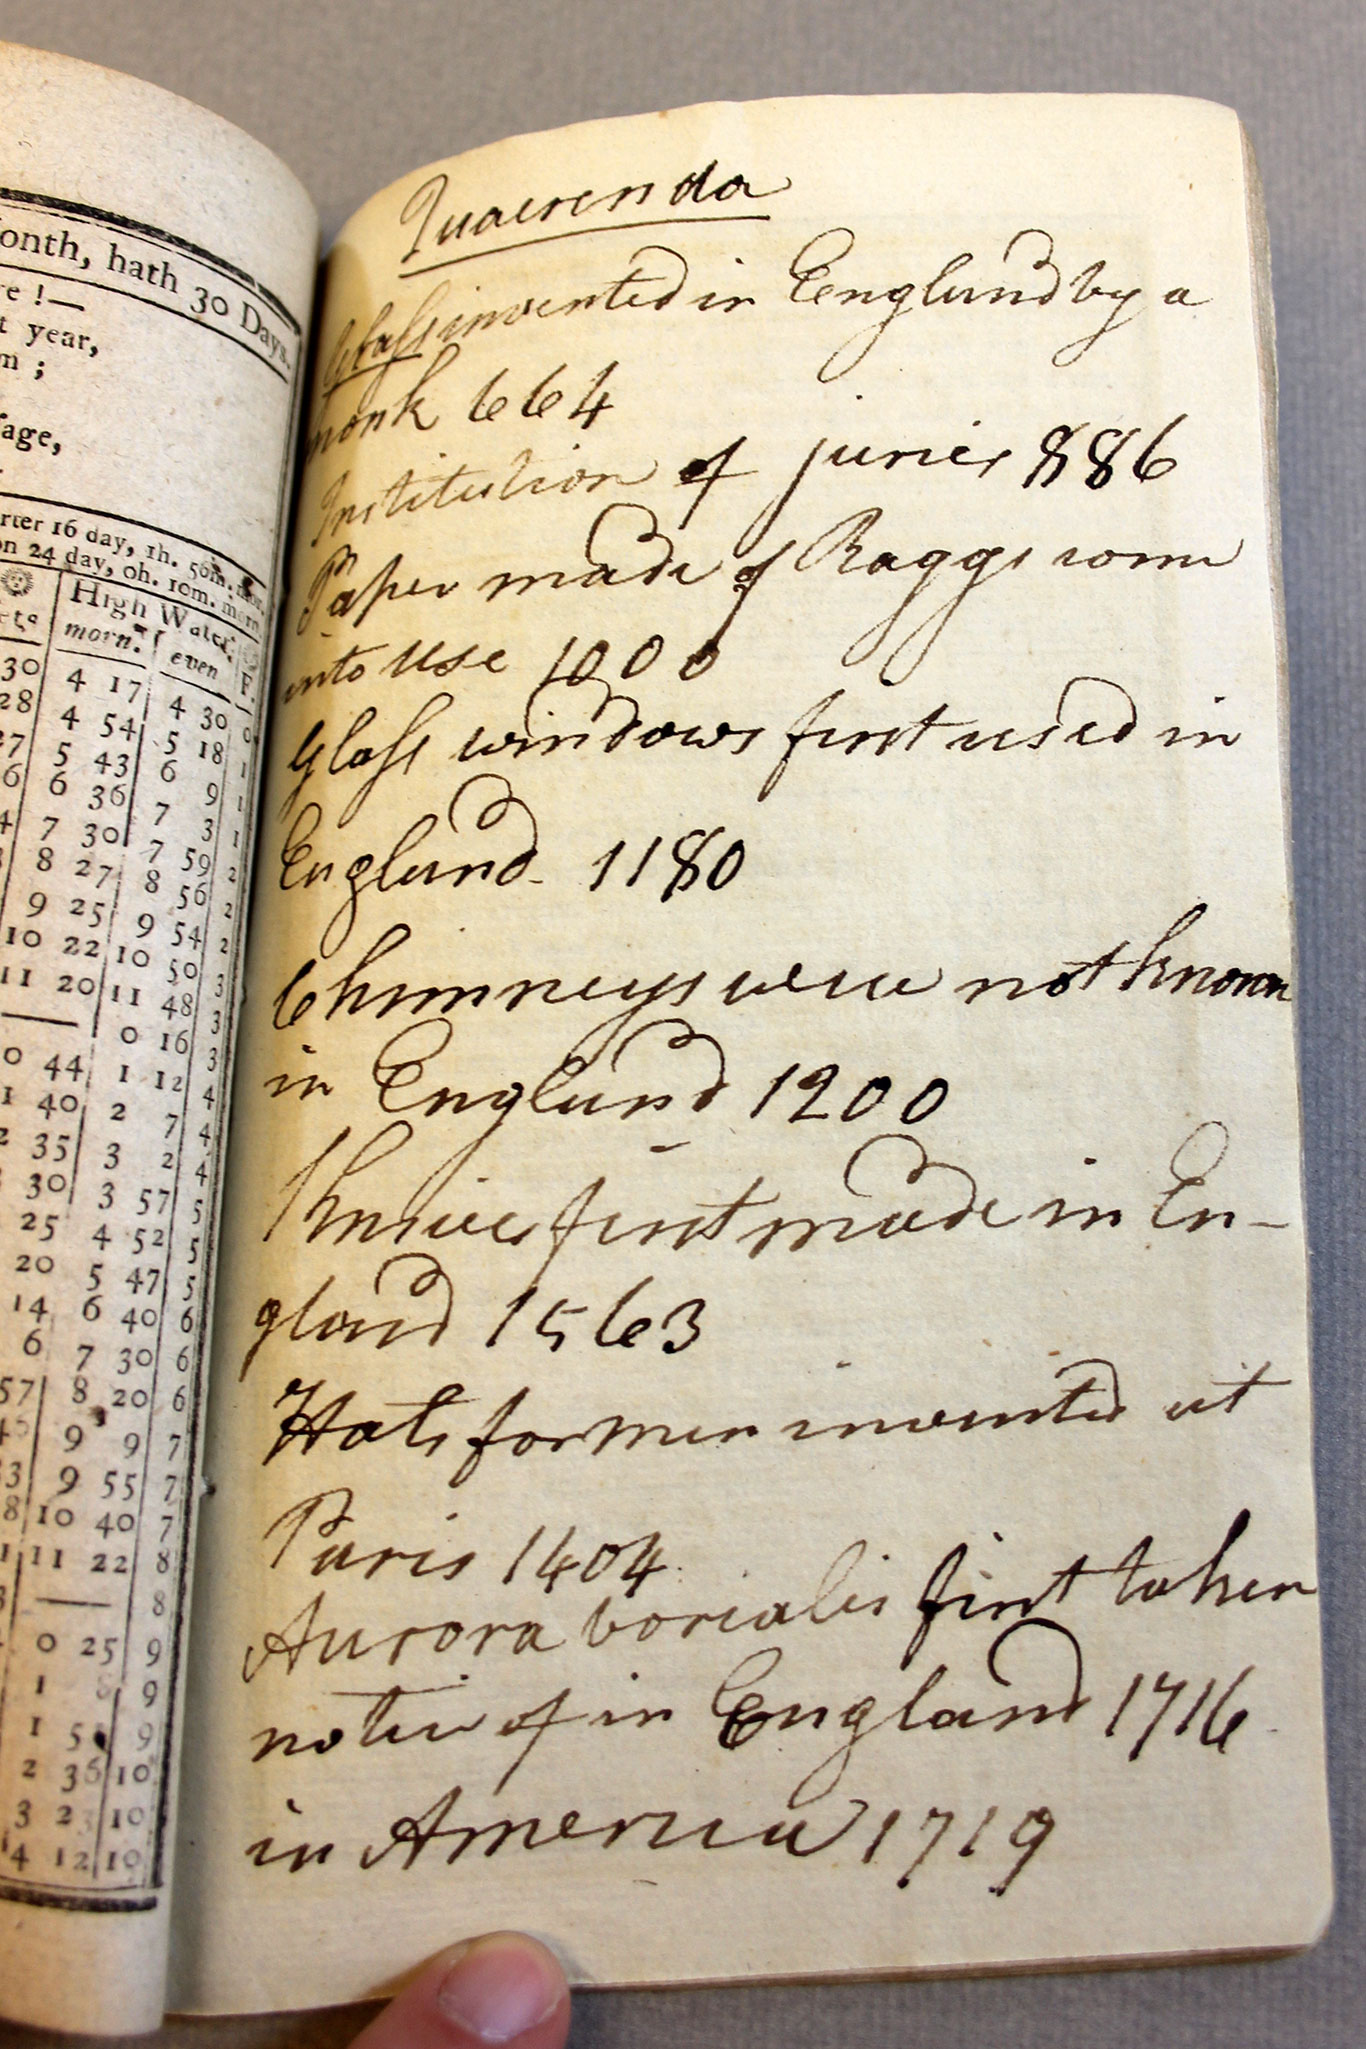 onth, hath 30 Days.
re !—
t year,
m ;
age,
rter 16 day, 1h. 56m. mor.
on 24 day, 0h. 10m. morn.
High Water.
morn. even F.
30 4 17 4 30 0
28 4 54 5 18 1
27 5 43 6 9 1
6 6 36 7 3 1
4 7 30 7 59 2
8 27 8 56 2
9 25 9 54 2
10 22 10 50 3
11 20 11 48 3
— 0 16 3
0 44 1 12 4
1 40 2 7 4
2 35 3 2 4
30 3 57 5
25 4 52 5
20 5 47 5
14 6 40 6
6 7 30 6
57 8 20 6
45 9 9 7
33 9 55 7
8 10 40 7
1 11 22 8
— 8
0 25 9
1 9
1 5 9
2 36 10
3 23 10
4 12 10
Quaerenda
Glass invented in England by a
monk 664
Institution of juries 886
Paper made of Raggs come
into use 1000
Glass windows first used in
England 1180
Chimneys were not known
in England 1200
Knives first made in En-
gland 1563
Hats for men invented at
Paris 1404
Aurora borialis first taken
notice of in England 1716
in America 1719